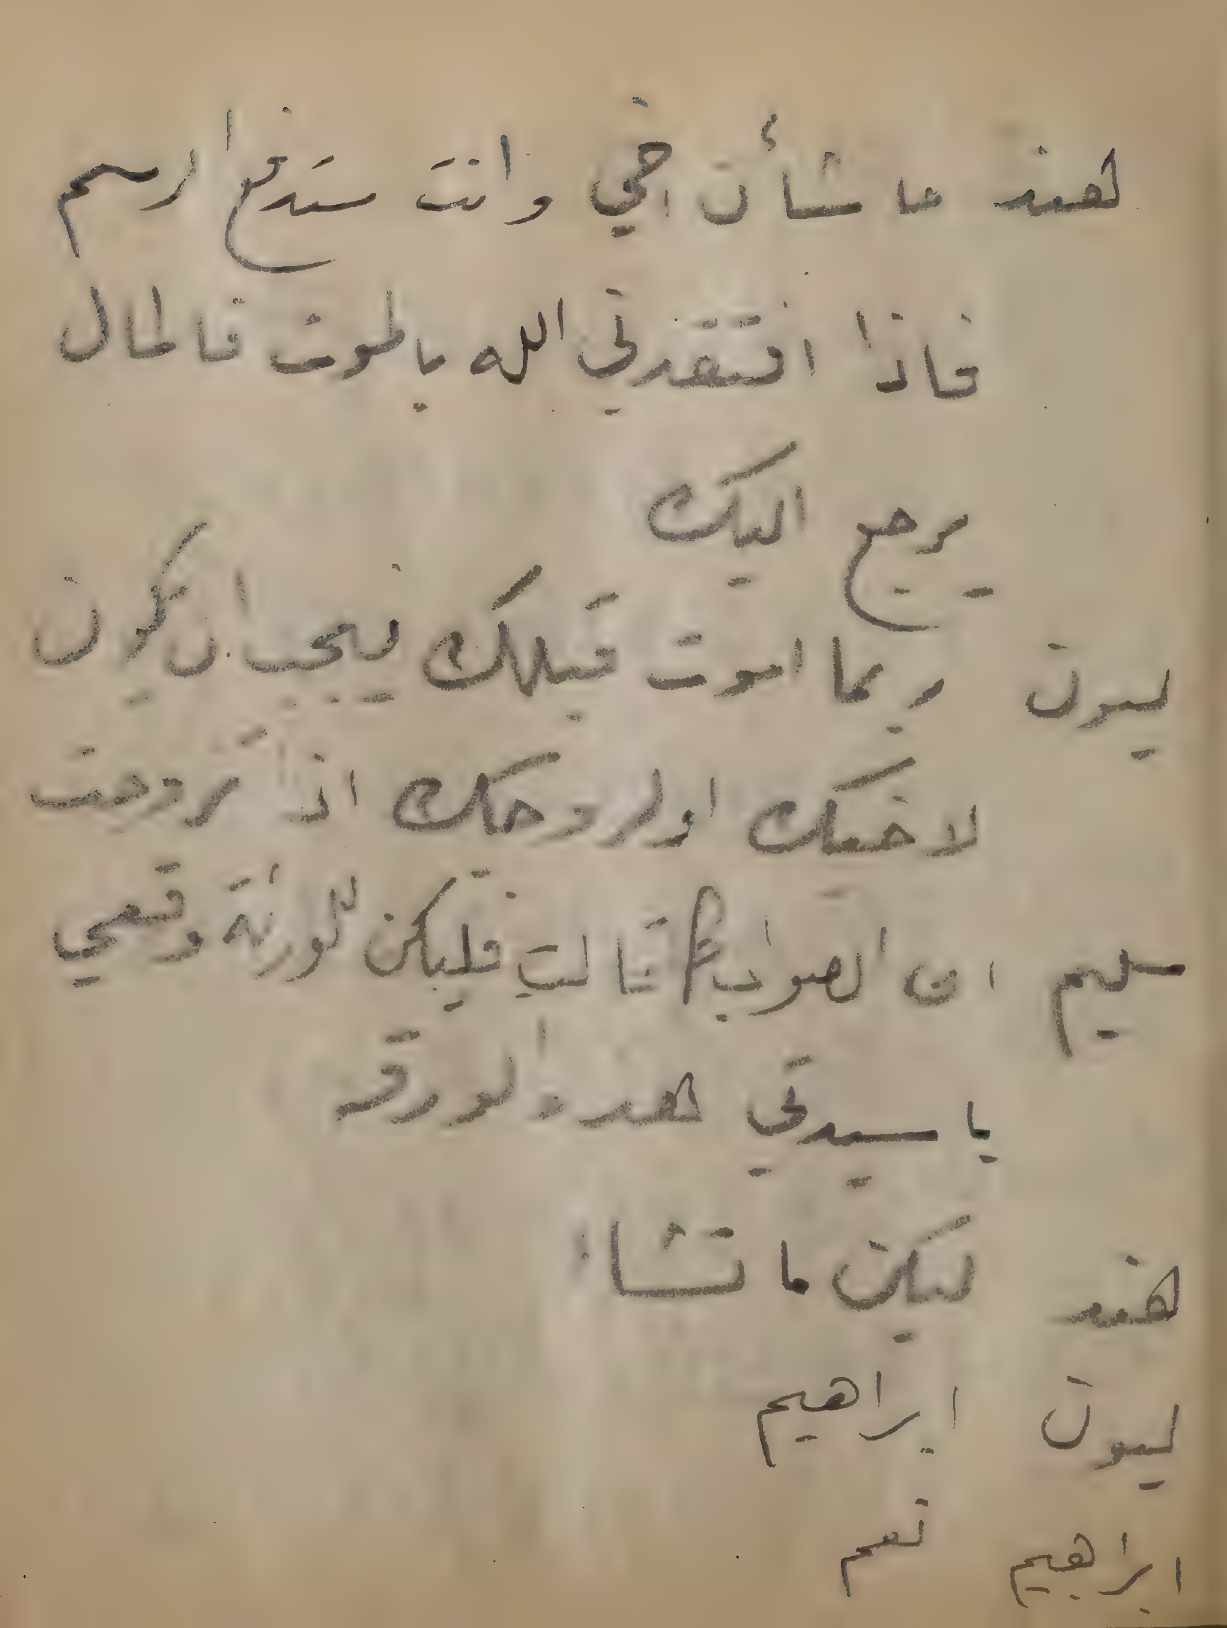 هند ما شأن اخي وانت ستدفع الرسم
فاذا افتقدني الله بالموت فالمال
يرجع اليك
ليون ربما اموت قبلك فيجب ان يكون
لاختك او لزوجك اذا تزوجت
سليم ان الصواب ما قالت فليكن للورثة وقعي
يا سيدتي هذه الورقة
هند ليكن ما تشاء
ليون ابراهيم
ابراهيم نعم